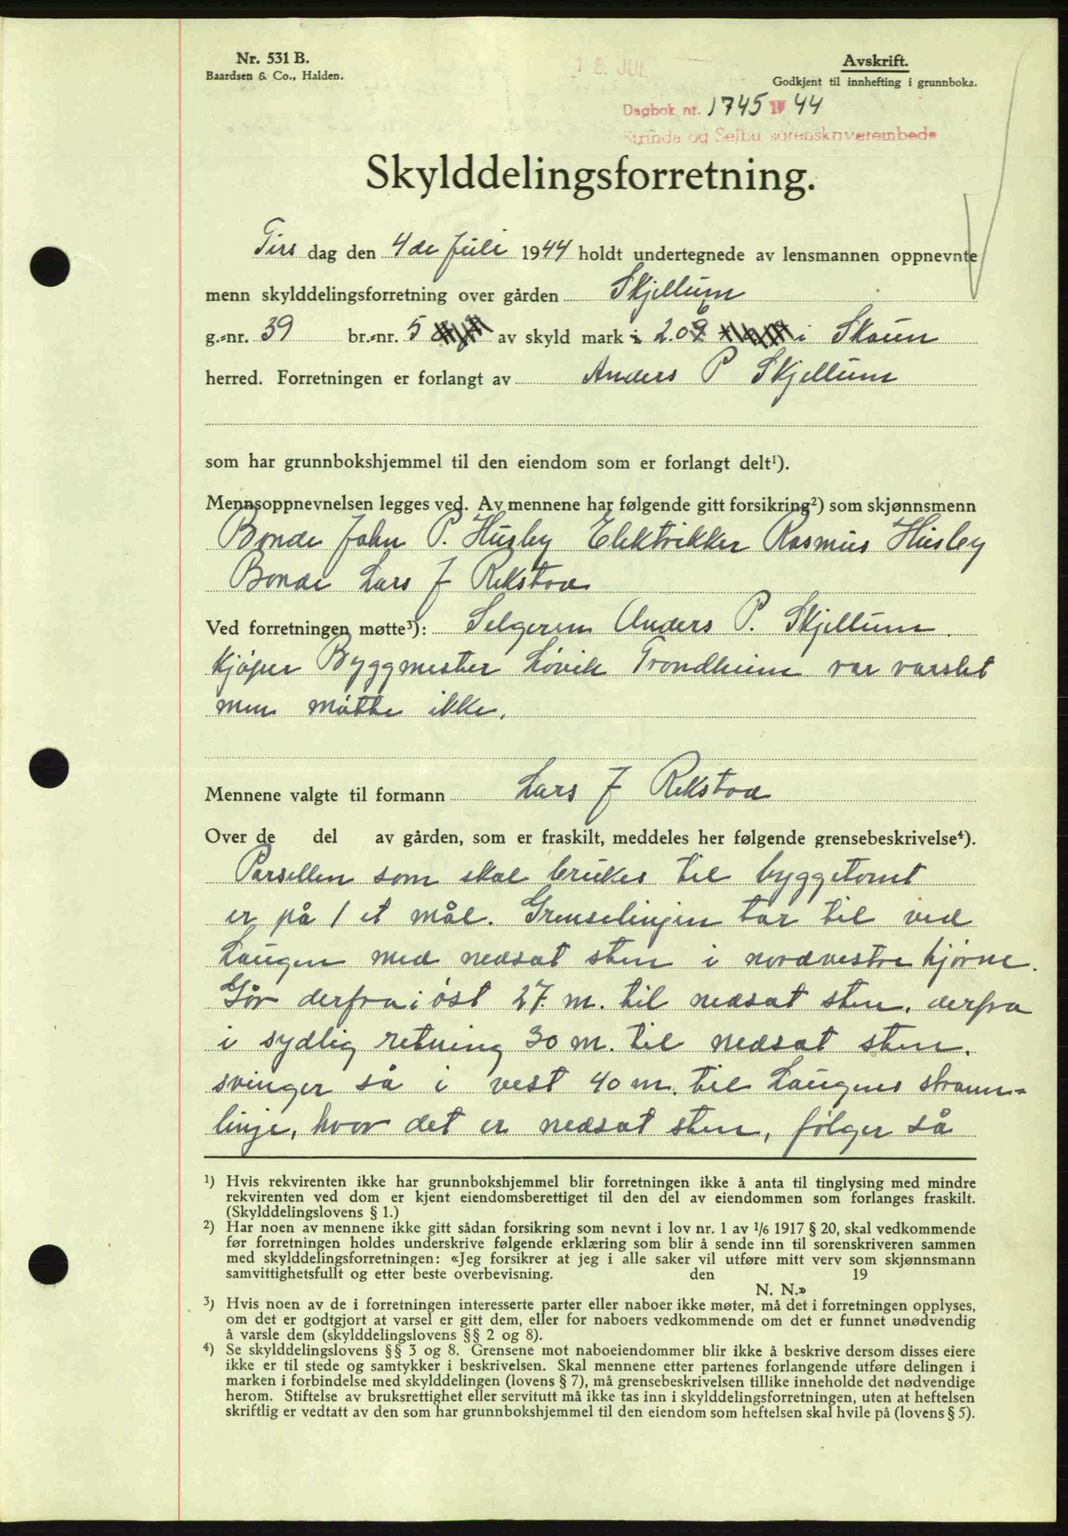 Nr. 531 B.
Baardsen & Co., Halden.
Avskrift.
Godkjent til innhefting i grunnboka.
18. JUL
Dagbok nr. 1745 1944
Strinda og Selbu sorenskriverembede
Skylddelingsforretning.
Tirs dag den 4de Juli 1944 holdt undertegnede av lensmannen oppnevnte
menn skylddelingsforretning over gården Skjellum
g.-nr. 39 br.-nr. 5 av skyld mark 2.06 i Skaun
herred. Forretningen er forlangt av Anders P Skjellum
som har grunnbokshjemmel til den eiendom som er forlangt delt¹).
Mennsoppnevnelsen legges ved. Av mennene har følgende gitt forsikring²) som skjønnsmenn
Bonde John P. Husby Elektrikker Rasmus Husby
Bonde Lars J Rekstad
Ved forretningen møtte³): Selgeren Anders P. Skjellum.
Kjøper Byggmester Løvik Trondheim var varslet
men møtte ikke.
Mennene valgte til formann Lars J Rekstad
Over de del av gården, som er fraskilt, meddeles her følgende grensebeskrivelse⁴).
Parsellen som skal brukes til byggetomt
er på 1 et mål. Grenselinjen tar til ved
Laugen med nedsat sten i nordvestre hjørne.
Går derfra i øst 27. m. til nedsat sten, derfra
i sydlig retning 30 m. til nedsat sten.
svinger så i vest 40 m. til Laugens strøm-
linje, hvor det er nedsat sten, følger så
¹) Hvis rekvirenten ikke har grunnbokshjemmel blir forretningen ikke å anta til tinglysing med mindre
rekvirenten ved dom er kjent eiendomsberettiget til den del av eiendommen som forlanges fraskilt.
(Skylddelingslovens § 1.)
²) Har noen av mennene ikke gitt sådan forsikring som nevnt i lov nr. 1 av 1/6 1917 § 20, skal vedkommende
før forretningen holdes underskrive følgende erklæring som blir å sende inn til sorenskriveren sammen
med skylddelingsforretningen: «Jeg forsikrer at jeg i alle saker vil utføre mitt verv som skjønnsmann
samvittighetsfullt og etter beste overbevisning. den 19
N. N.»
³) Hvis noen av de i forretningen interesserte parter eller naboer ikke møter, må det i forretningen opplyses,
om det er godtgjort at varsel er gitt dem, eller for naboers vedkommende om det er funnet unødvendig
å varsle dem (skylddelingslovens §§ 2 og 8).
⁴) Se skylddelingslovens §§ 3 og 8. Grensene mot naboeiendommer blir ikke å beskrive dersom disses eiere
ikke er til stede og samtykker i beskrivelsen. Skal mennene etter partenes forlangende utføre delingen i
marken i forbindelse med skylddelingen (lovens § 7), må grensebeskrivelsen tillike inneholde det nødvendige
herom. Stiftelse av bruksrettighet eller servitutt må ikke tas inn i skylddelingsforretningen, uten at heftelsen
skriftlig er vedtatt av den som har grunnbokshjemmel til den eiendom som heftelsen skal hvile på (lovens § 5).